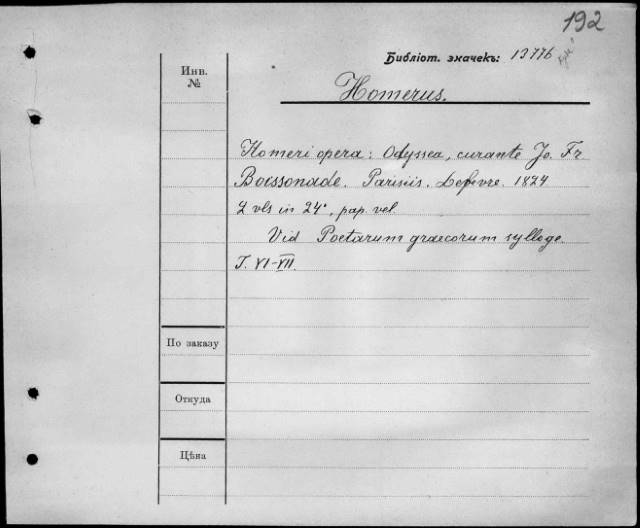 192
Библіот. значекъ: 13776
Инв.
№
Homerus.
Homeri opera: Odyssea, curante Jo. Fr
Boissonade. Parisiis. Lefevre. 1824
2 vls in 24°, pap. vel.
Vid Poetarum graecorum sylloge.
T. VI-VII.
По заказу
Откуда
Цѣна